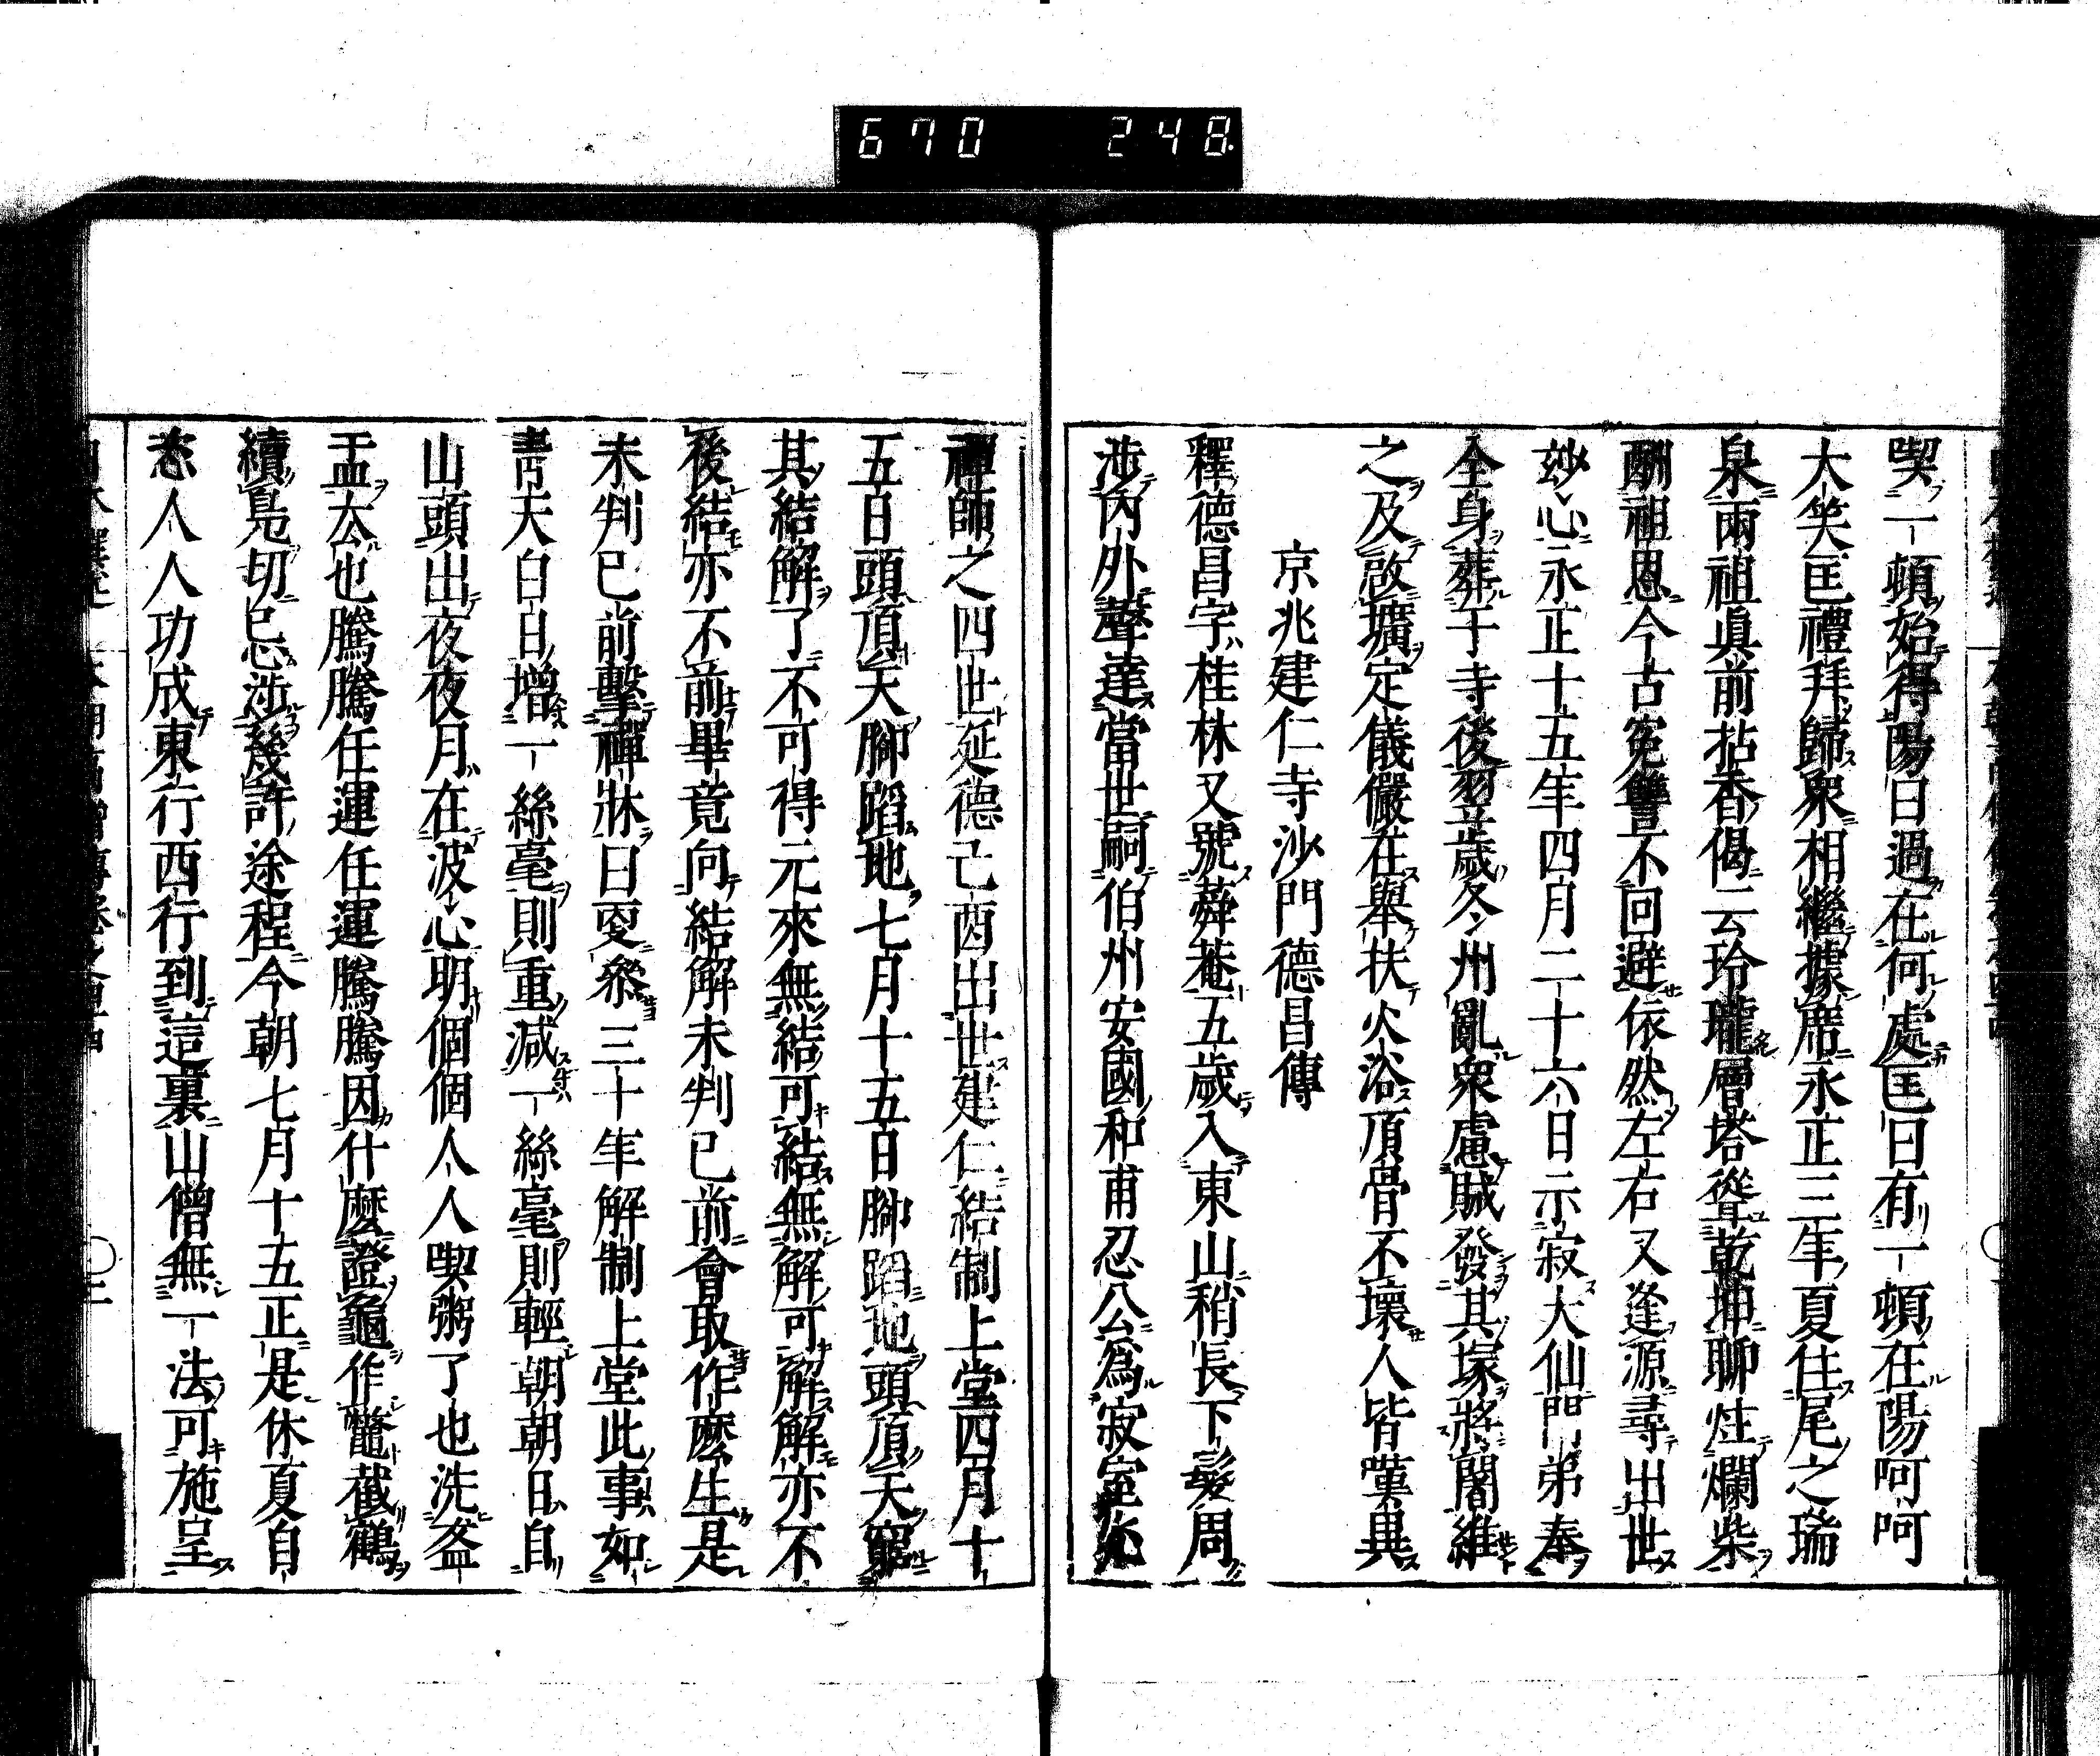 670 248
喫一頓始得陽曰過在何處匡曰有一頓在陽呵呵
大笑匡禮拜歸衆相繼據席永正三年夏住尾之瑞
泉兩祖眞前拈香偈云玲瓏層塔聳乾坤聊炷爛柴
酬祖恩今古寃讐不回避依然左右又逢源尋出世
玅心永正十五年四月二十六日示寂大仙門弟奉
全身葬于寺後翌歲冬州亂衆慮賊發其塚將闍維
之及啟壙定儀儼在舉扶火浴頂骨不壞人皆嘆異
京兆建仁寺沙門德昌傳
釋德昌字桂林又號蕣菴五歲入東山稍長下髮周
涉內外聲達當世嗣伯州安國和甫忍公爲寂室光
禪師之四世延德己酉出世建仁結制上堂四月十
五日頭頂天腳蹈地七月十五日腳蹈地頭頂天窮
其結解了不可得元來無結可結無解可解解亦不
後結亦不前畢竟向結解未判已前會取作麼生是
未判已前擊禪牀曰更參三十年解制上堂此事如
青天白日增一絲毫則重減一絲毫則輕朝朝日自
山頭出夜夜月在波心明個個人人喫粥了也洗盋
盂去也騰騰任運任運騰騰因什麼證龜作鼈截鶴
續鳧切忌涉幾許途程今朝七月十五正是休夏自
恣人人功成東行西行到這裏山僧無一法可施呈